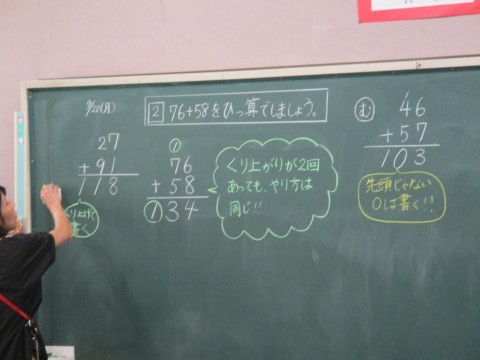 9/22(月)
② 76+58をひっ算でしましょう。
27
+91
118
くり上げて
書く
①
76
+58
①34
くり上がりが2回
あっても、やり方は
同じ!!
む
46
+57
103
先頭じゃない
0は書く!!